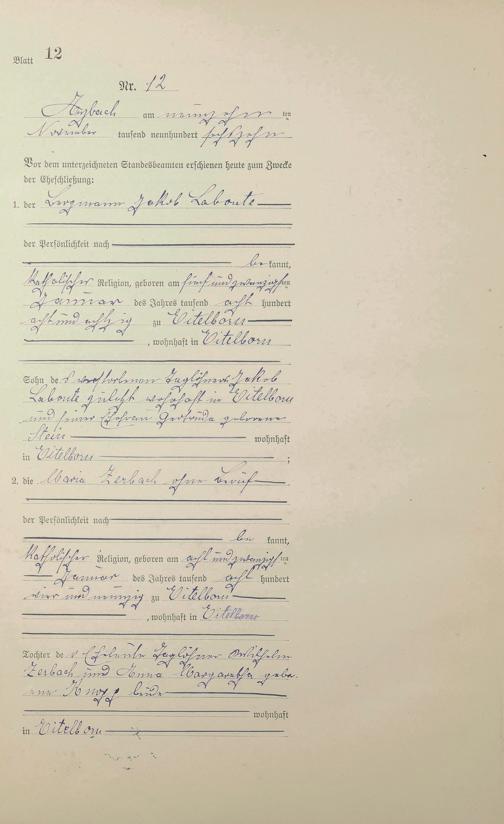 Blatt 12
Nr. 12
Arzbach am neunzehn ten
November tausend neunhundert sechszehn
Vor dem unterzeichneten Standesbeamten erschienen heute zum Zwecke
der Eheschließung:
1. der Bergmann Jakob Labonte
der Persönlichkeit nach
be kannt,
katholischer Religion, geboren am fünfundzwanzigsten
Januar des Jahres tausend acht hundert
achtundachtzig zu Eitelborn
, wohnhaft in Eitelborn
Sohn des verstorbenen Taglöhners Jakob
Labonte zuletzt wohnhaft in Eitelborn
und seiner Ehefrau Gertruda geborene
Stein wohnhaft
in Eitelborn ;
2. die Maria Zerbach ohne Beruf
der Persönlichkeit nach
be kannt,
katholischer Religion, geboren am achtundzwanzigsten
Januar des Jahres tausend acht hundert
vierundneunzig zu Eitelborn
, wohnhaft in Eitelborn
Tochter der Eheleute Taglöhner Wilhelm
Zerbach und Anna Margaretha gebo-
rene beide
wohnhaft
in Eitelborn